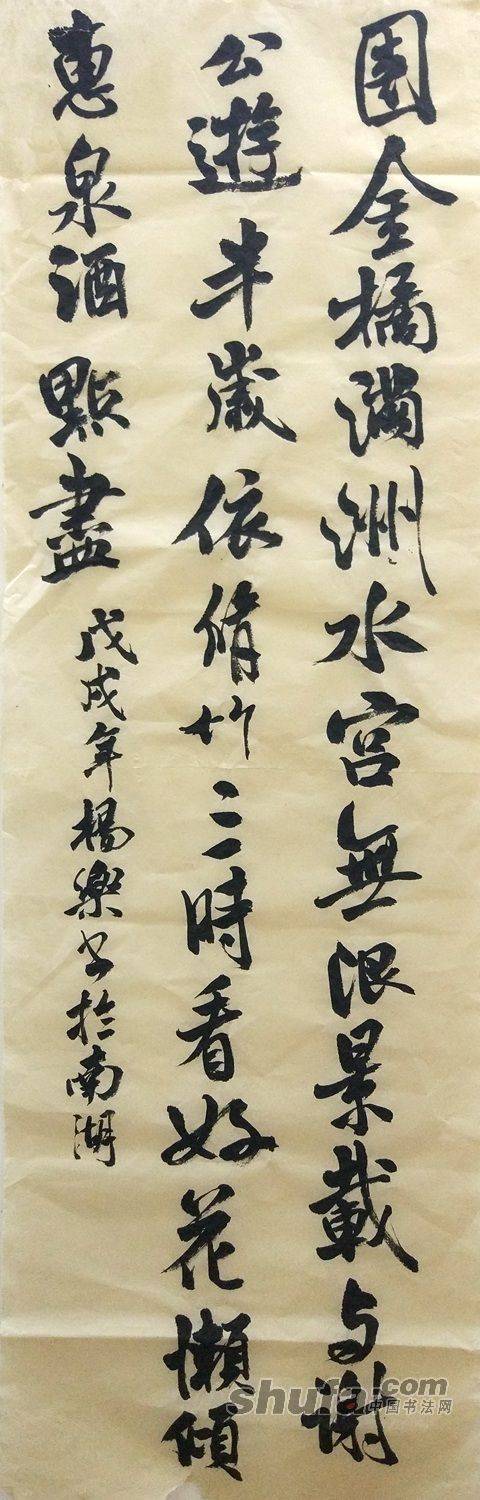 團金橘滿洲水宮無限景載与謝
公遊半歲依脩竹三時看好花懶傾
惠泉酒點盡
戊戌年楊樂书於南湖
shufa.com
中国书法网